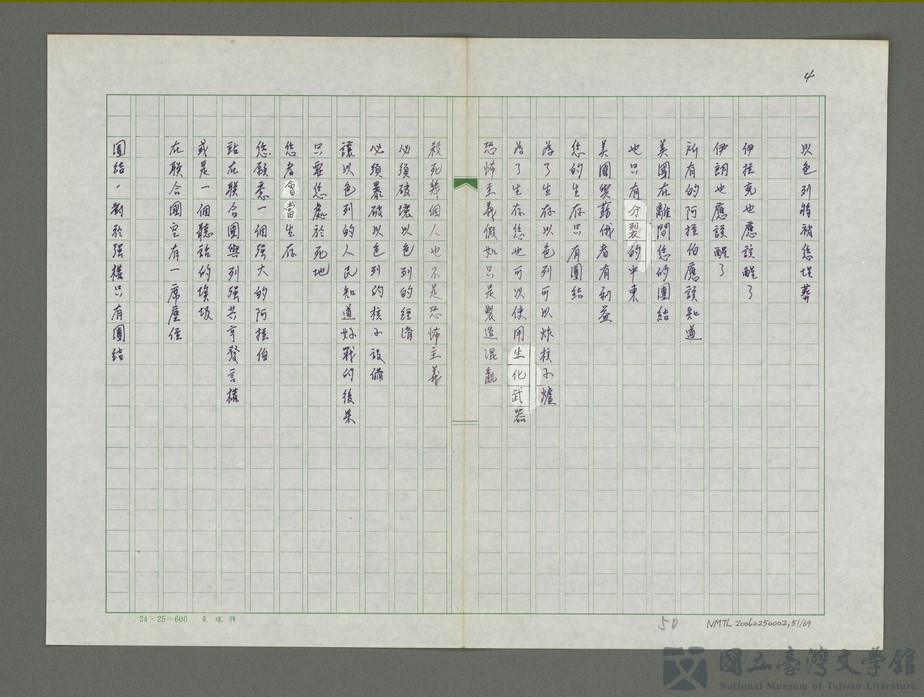 4
以色列將被您埋葬
伊拉克也應該醒了
伊朗也應該醒了
所有的阿拉伯應該知道
美國在離間您的團結
也只有分裂的中東
美國與蘇俄者有利益
您的生存只有團結
為了生存以色列可以炸核子爐
為了生存您也可以使用生化武器
恐怖主義假如只是製造混亂
殺死幾個人也不是恐怖主義
必須破壞以色列的經濟
必須暴破以色列的核子設備
讓以色列的人民知道好戰的後果
只要您處於死地
您者會當生存
您願意一個強大的阿拉伯
站在聯合國與列強共享發言權
或是一個聽話的埃及
在聯合國空有一席座位
團結，對於強權只有團結
24×25=600
50
NMTL 20060250002,51/69
國立臺灣文學館
National Museum of Taiwan Literature